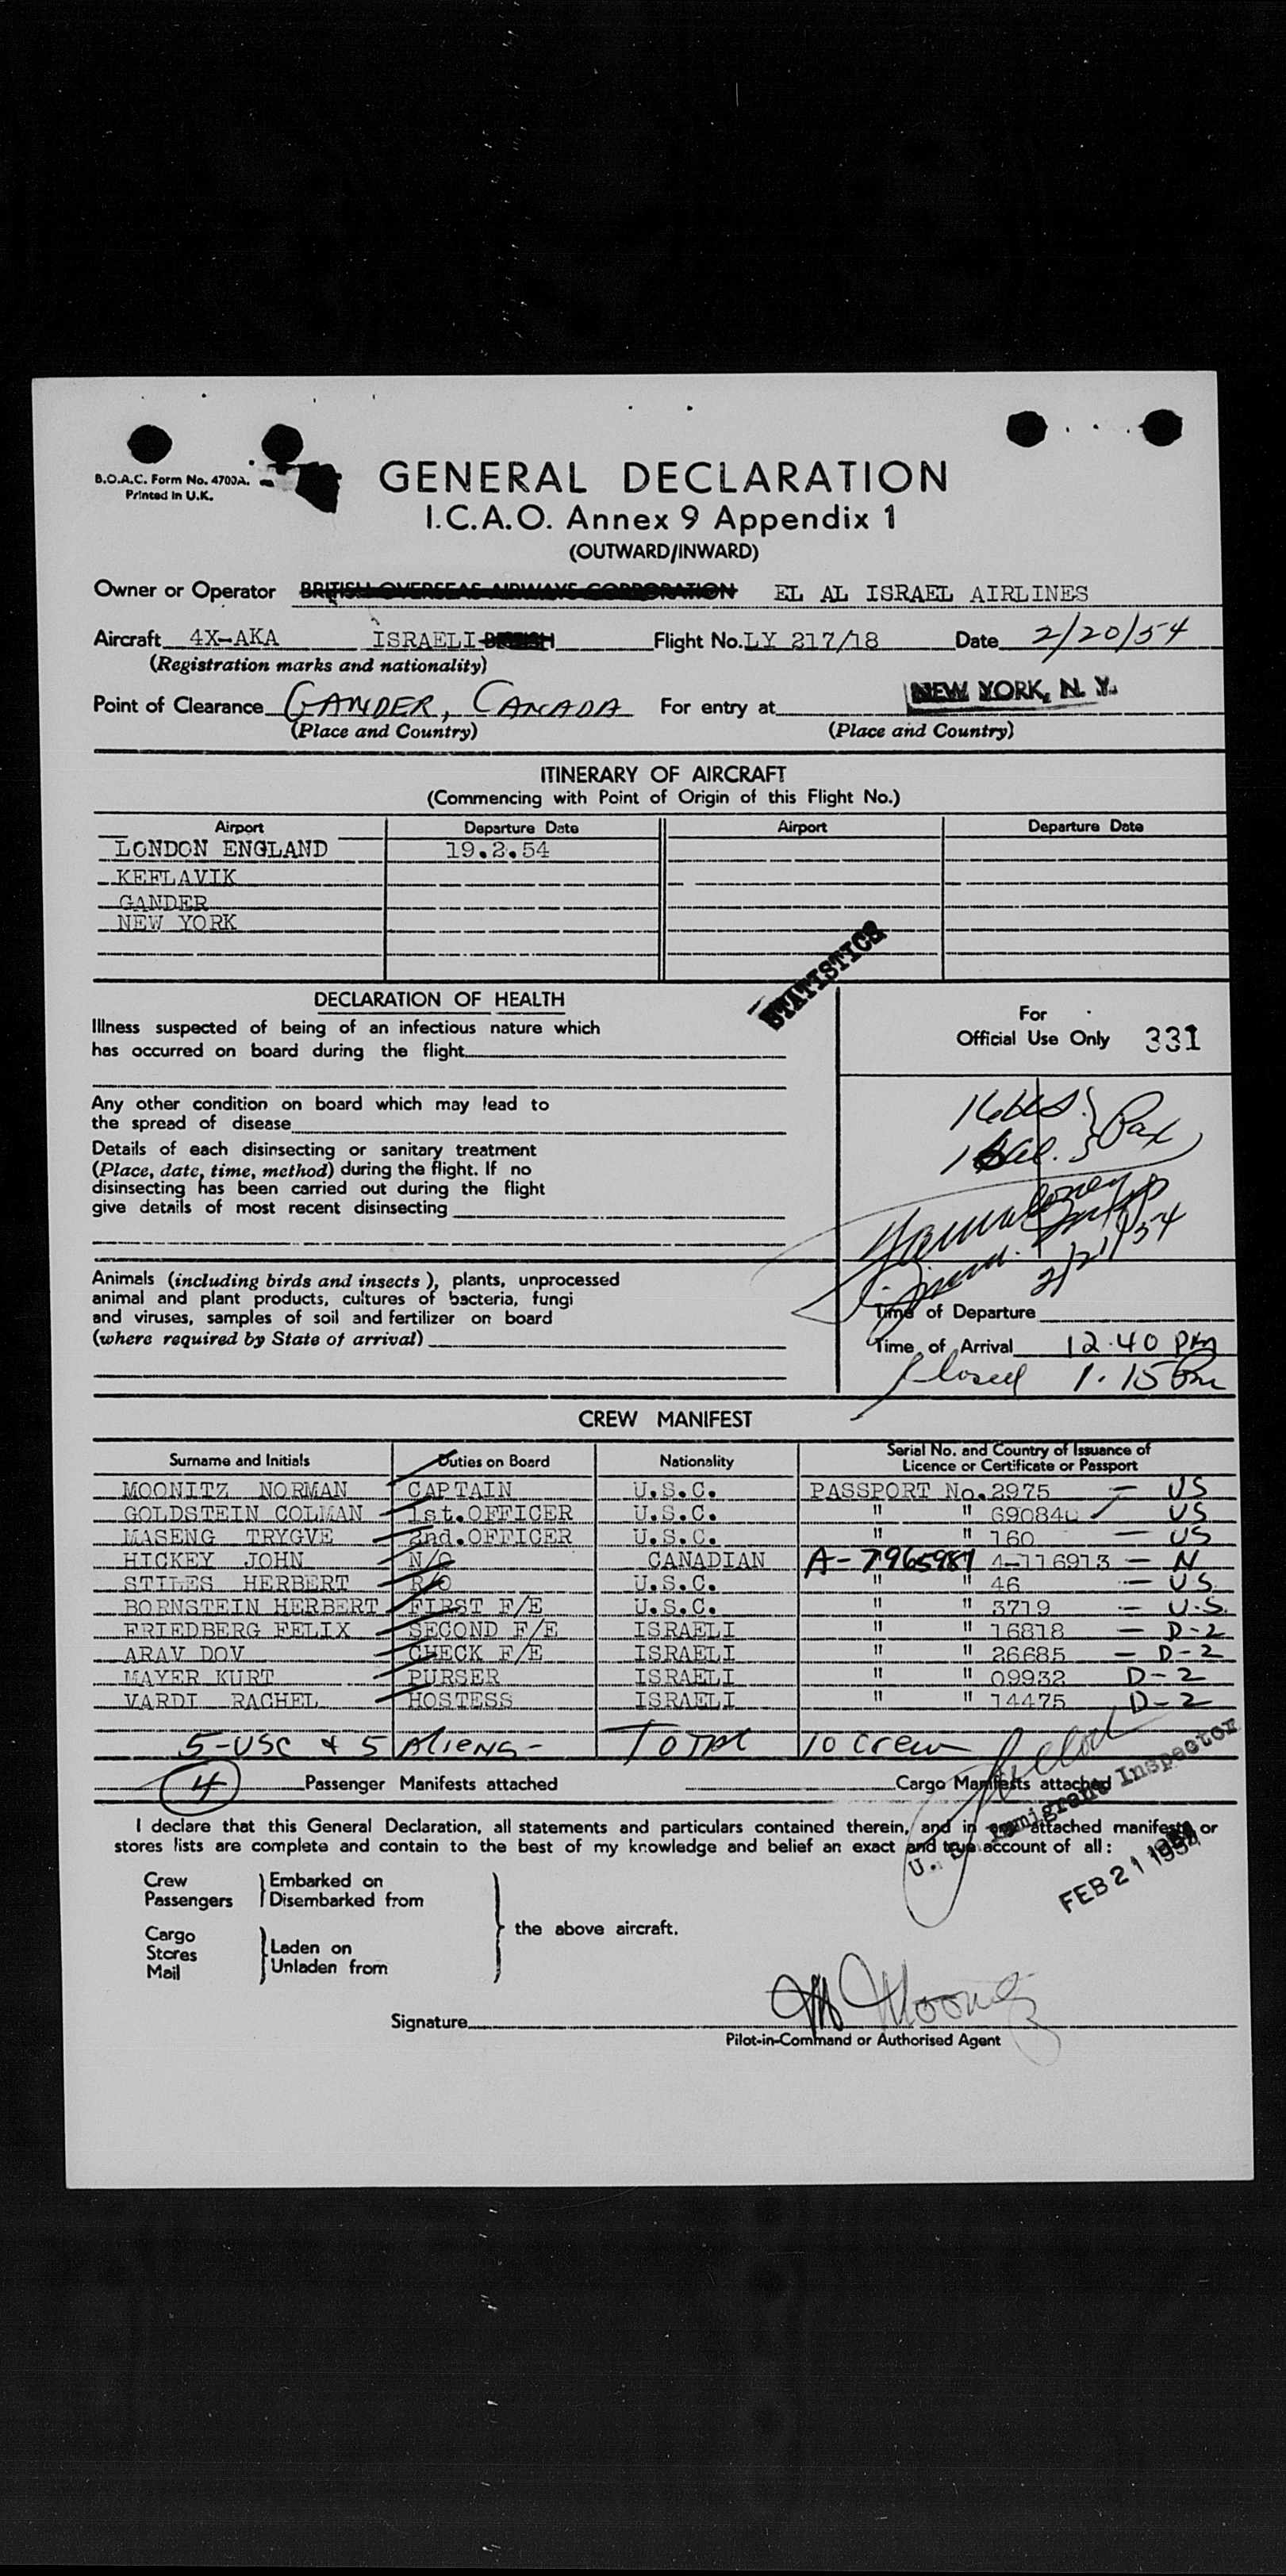 B.O.A.C. Form No. 4700A.
Printed in U.K.
GENERAL DECLARATION
I.C.A.O. Annex 9 Appendix 1
(OUTWARD/INWARD)
Owner or Operator BRITISH OVERSEAS AIRWAYS CORPORATION EL AL ISRAEL AIRLINES
Aircraft 4X-AKA ISRAELI BRITISH Flight No. LY 217/18 Date 2/20/54
(Registration marks and nationality)
Point of Clearance GANDER, CANADA For entry at NEW YORK, N. Y.
(Place and Country) (Place and Country)
ITINERARY OF AIRCRAFT
(Commencing with Point of Origin of this Flight No.)
Airport Departure Date Airport Departure Date
LONDON ENGLAND 19.2.54
KEFLAVIK
GANDER
NEW YORK
STATISTICS
DECLARATION OF HEALTH
Illness suspected of being of an infectious nature which
has occurred on board during the flight
Any other condition on board which may lead to
the spread of disease
Details of each disinsecting or sanitary treatment
(Place, date, time, method) during the flight. If no
disinsecting has been carried out during the flight
give details of most recent disinsecting
Animals (including birds and insects), plants, unprocessed
animal and plant products, cultures of bacteria, fungi
and viruses, samples of soil and fertilizer on board
(where required by State of arrival)
For
Official Use Only 331
Pax
2/21/54
Time of Departure
Time of Arrival 12.40 PM
Closed 1.15 Pm
CREW MANIFEST
Surname and Initials Duties on Board Nationality Serial No. and Country of Issuance of
Licence or Certificate or Passport
MOONITZ NORMAN CAPTAIN U.S.C. PASSPORT No. 2975 — US
GOLDSTEIN COLMAN 1st. OFFICER U.S.C. " " 690840 — US
MASENG TRYGVE 2nd. OFFICER U.S.C. " " 160 — US
HICKEY JOHN N/O CANADIAN A-7965987 4-116913 — N
STILES HERBERT R/O U.S.C. " " 46 — US.
BORNSTEIN HERBERT FIRST F/E U.S.C. " " 3719 — U.S.
FRIEDBERG FELIX SECOND F/E ISRAELI " " 16818 — D-2
ARAV DOV CHECK F/E ISRAELI " " 26685 — D-2
MAYER KURT PURSER ISRAELI " " 09932 D-2
VARDI RACHEL HOSTESS ISRAELI " " 14475 D-2
5-USC + 5 ALIENS- TOTAL 10 Crew
4 Passenger Manifests attached Cargo Manifests attached
U. S. Immigrant Inspector
FEB 21 1954
I declare that this General Declaration, all statements and particulars contained therein, and in any attached manifests or
stores lists are complete and contain to the best of my knowledge and belief an exact and true account of all:
Crew Embarked on
Passengers Disembarked from
the above aircraft.
Cargo
Stores Laden on
Mail Unladen from
Signature N Moonitz
Pilot-in-Command or Authorised Agent